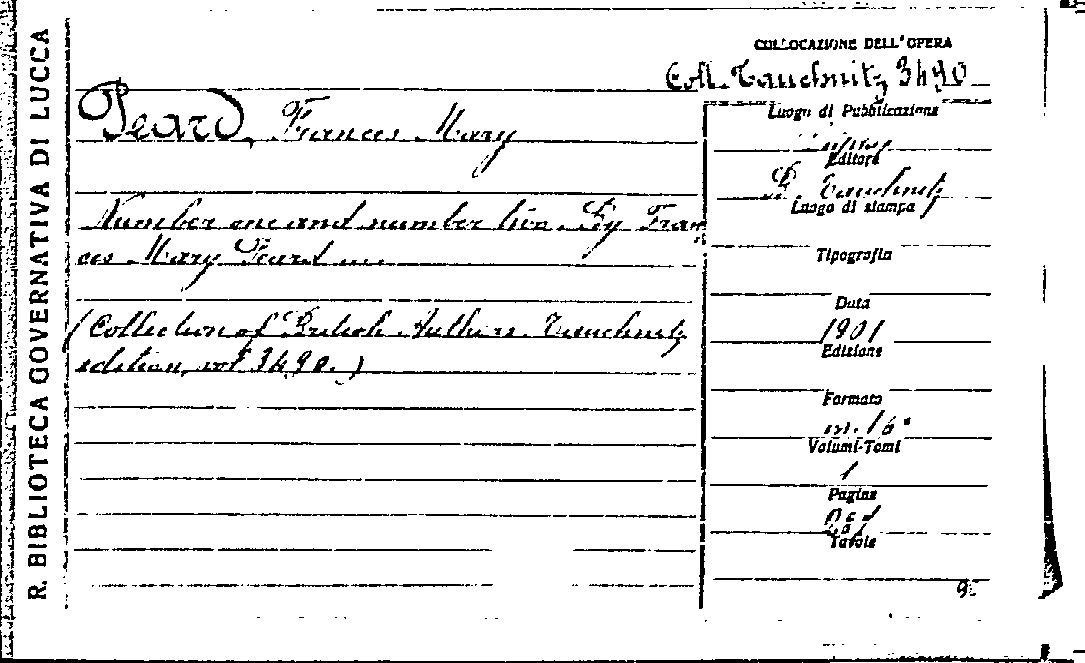 R. BIBLIOTECA GOVERNATIVA DI LUCCA
COLLOCAZIONE DELL'OPERA
Coll. Tauchnitz 3490
Peard, Frances Mary
Number one and number two. By Fran
ces Mary Peard
(Collection of British Authors. Tauchnitz
edition, vol 3490.)
Luogo di Pubblicazione
Editore
B. Tauchnitz
Luogo di stampa
Tipografia
Data
1901
Edizione
Formato
in. 16°
Volumi-Tomi
1
Pagine
Tavole